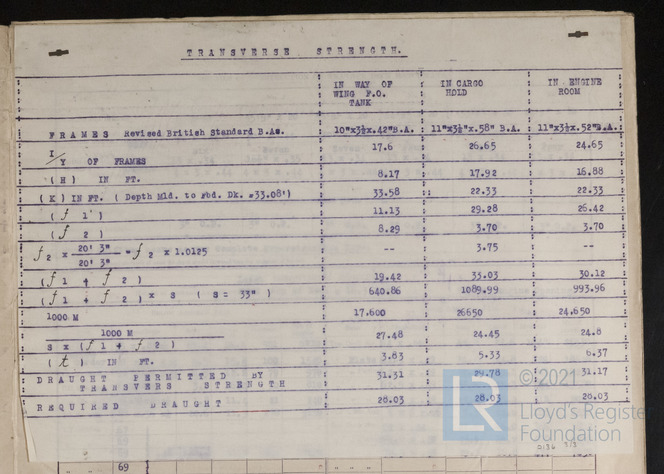 TRANSVERSE STRENGTH.
IN WAY OF WING F.O. TANK IN CARGO HOLD IN ENGINE ROOM
FRAMES Revised British Standard B.As. 10"x3½x.42"B.A. 11"x3½"x.58" B.A. 11"x3½x.52"B.A.
I/Y OF FRAMES 17.6 26.65 24.65
(H) IN FT. 8.17 17.92 16.88
(K) IN FT. (Depth Mld. to Fbd. Dk. =33.08') 33.58 22.33 22.33
(f 1) 11.13 29.28 26.42
(f 2) 8.29 3.70 3.70
f2 x 20' 3" / 20' 3" = f2 x 1.0125 -- 3.75 --
(f1 + f2) 19.42 33.03 30.12
(f1 + f2) x S (S= 33") 640.86 1089.99 993.96
1000 M 17.600 26650 24.650
1000 M / S x (f1 + f2) 27.48 24.45 24.8
(t) IN FT. 3.83 5.33 6.37
DRAUGHT PERMITTED BY TRANSVERS STRENGTH 31.31 29.78 31.17
REQUIRED DRAUGHT 28.03 28.03 28.03
LR
© 2021
Lloyd's Register
Foundation
69